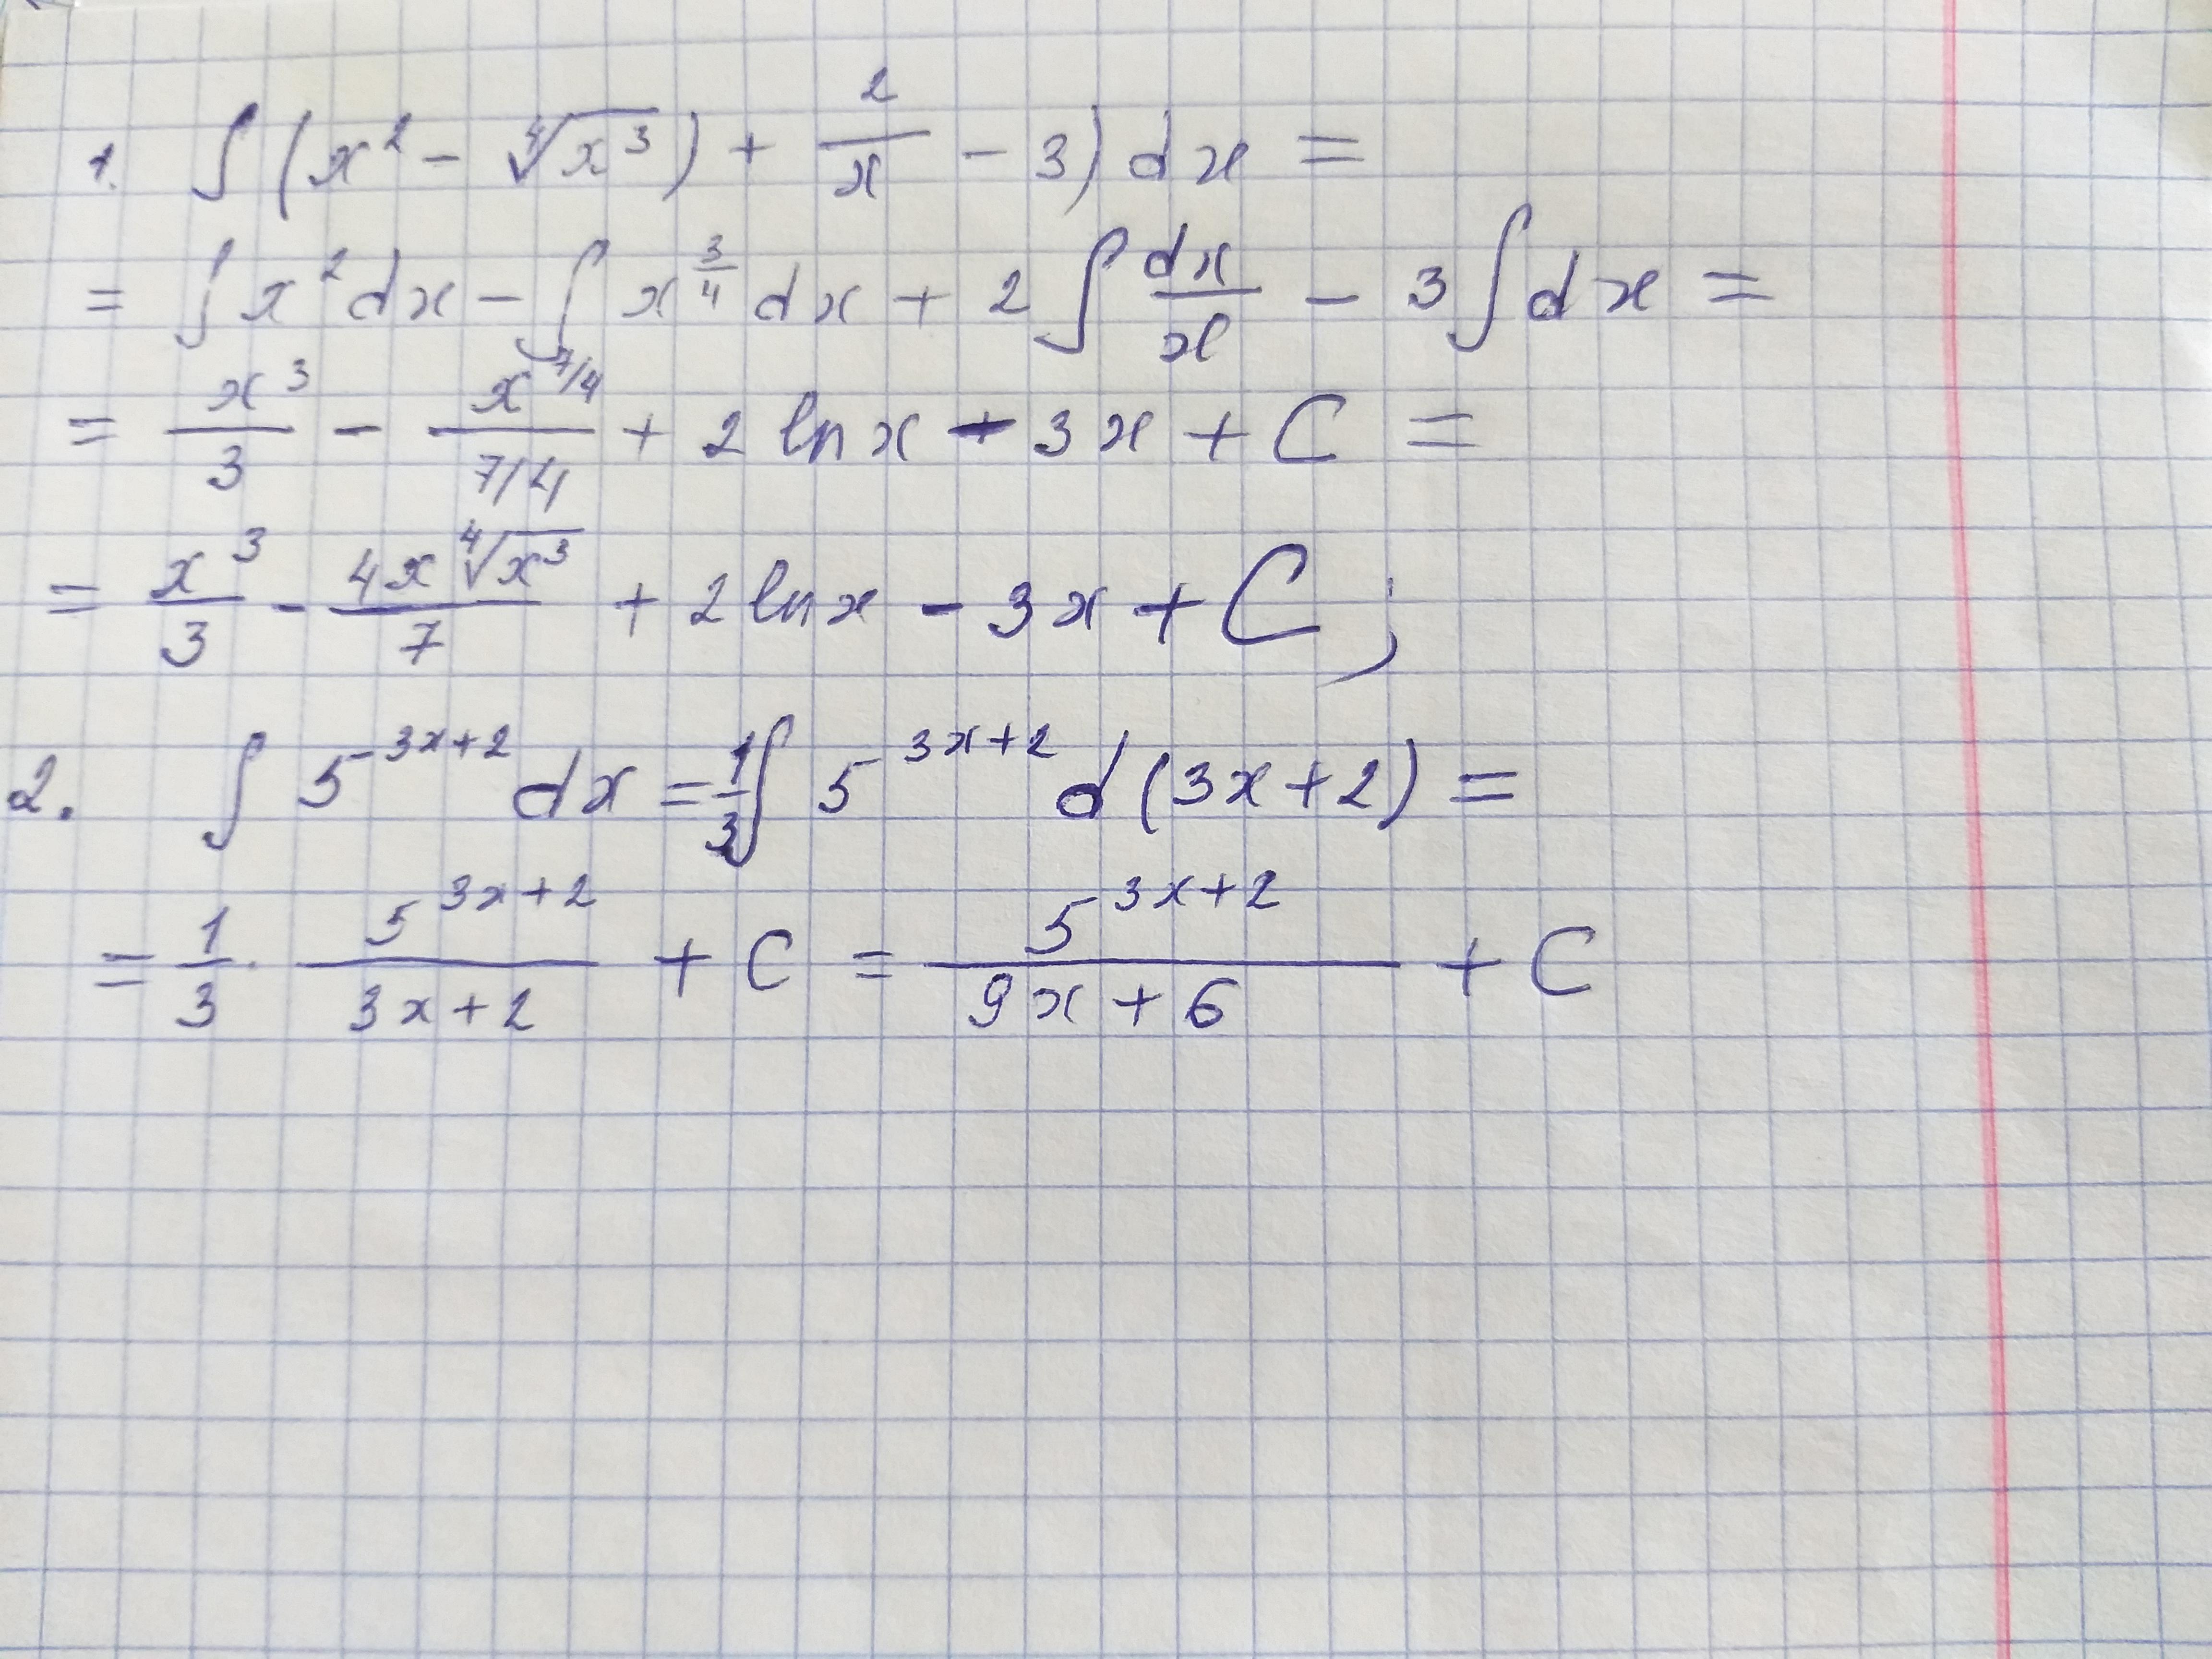 1. ∫ (x² - ⁴√x³) + 2/x - 3) dx =
= ∫ x² dx - ∫ x^(3/4) dx + 2 ∫ dx/x - 3 ∫ dx =
= x³/3 - x^(7/4)/(7/4) + 2 ln x - 3x + C =
= x³/3 - 4x ⁴√x³/7 + 2 ln x - 3x + C ;
2. ∫ 5^(3x+2) dx = 1/3 ∫ 5^(3x+2) d(3x+2) =
= 1/3 · 5^(3x+2)/(3x+2) + C = 5^(3x+2)/(9x+6) + C